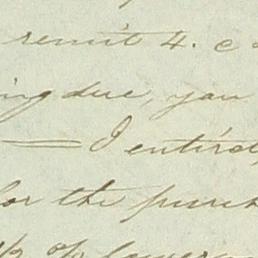 remit 4. c
ing due, you
— I entirel
for the purch